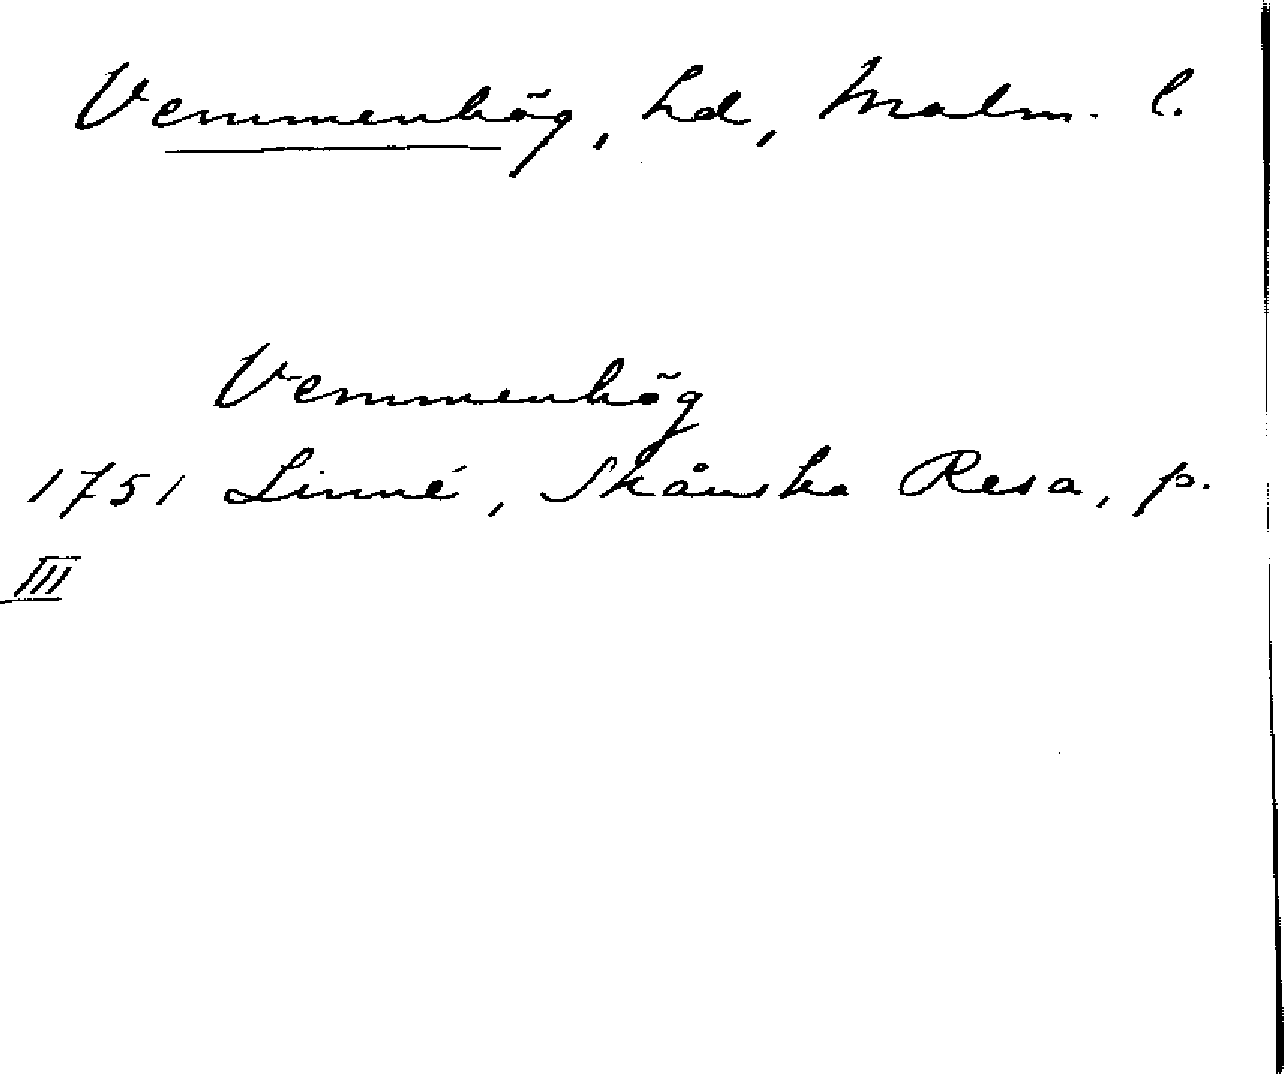 Vemmenhög, hd, Malm. l.
Vemmenhög
1751 Linné, Skånska Resa, p.
III